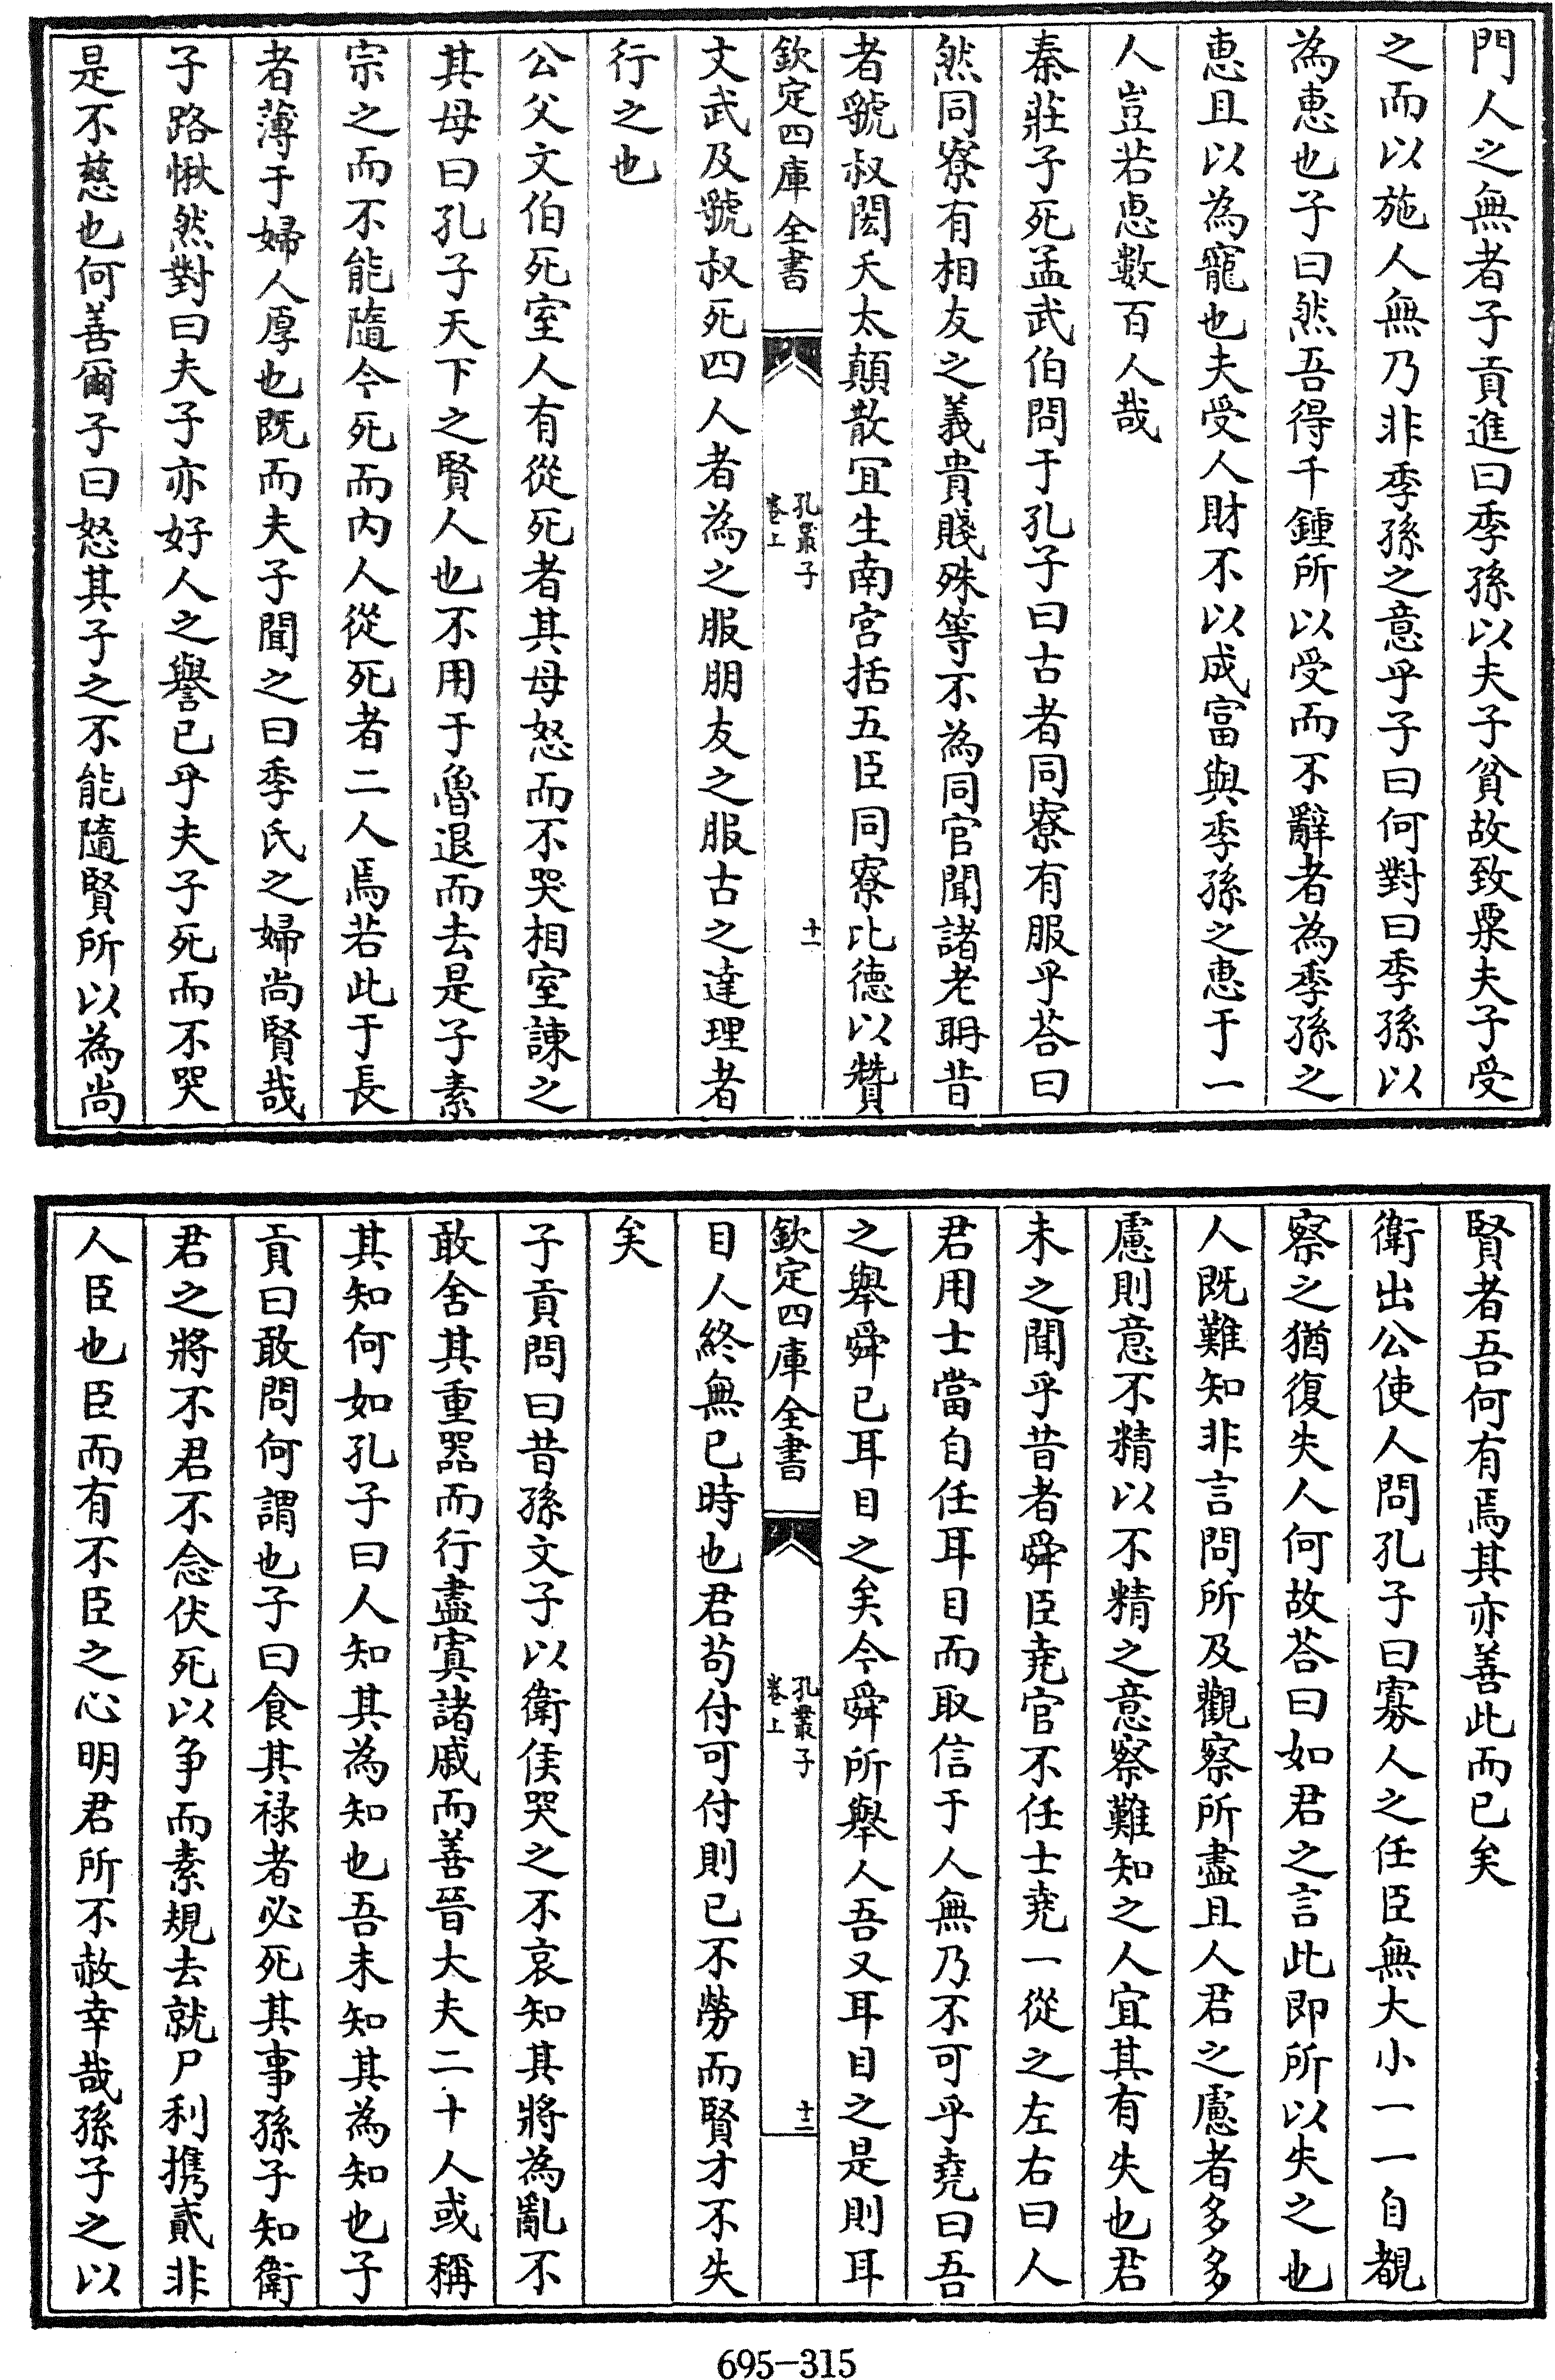 門人之無者子貢進曰季孫以夫子貧故致粟夫子受
之而以施人無乃非季孫之意乎子曰何對曰季孫以
為惠也子曰然吾得千鍾所以受而不辭者為季孫之
惠且以為寵也夫受人財不以成富與季孫之惠于一
人豈若惠數百人哉
秦莊子死孟武伯問于孔子曰古者同寮有服乎荅曰
然同寮有相友之義貴賤殊等不為同官聞諸老聃昔
者虢叔閎夭太顛散宜生南宮括五臣同寮比德以贊
欽定四庫全書
孔叢子
卷上
十一
文武及虢叔死四人者為之服朋友之服古之達理者
行之也
公父文伯死室人有從死者其母怒而不哭相室諫之
其母曰孔子天下之賢人也不用于魯退而去是子素
宗之而不能隨今死而內人從死者二人焉若此于長
者薄于婦人厚也既而夫子聞之曰季氏之婦尚賢哉
子路愀然對曰夫子亦好人之譽己乎夫子死而不哭
是不慈也何善爾子曰怒其子之不能隨賢所以為尚
賢者吾何有焉其亦善此而已矣
衛出公使人問孔子曰寡人之任臣無大小一一自觀
察之猶復失人何故荅曰如君之言此即所以失之也
人既難知非言問所及觀察所盡且人君之慮者多多
慮則意不精以不精之意察難知之人宜其有失也君
未之聞乎昔者舜臣堯官不任士堯一從之左右曰人
君用士當自任耳目而取信于人無乃不可乎堯曰吾
之舉舜已耳目之矣今舜所舉人吾又耳目之是則耳
欽定四庫全書
孔叢子
卷上
十二
目人終無已時也君苟付可付則已不勞而賢才不失
矣
子貢問曰昔孫文子以衛侯哭之不哀知其將為亂不
敢舍其重器而行盡寘諸戚而善晉大夫二十人或稱
其知何如孔子曰人知其為知也吾未知其為知也子
貢曰敢問何謂也子曰食其禄者必死其事孫子知衛
君之將不君不念伏死以爭而素規去就尸利攜貳非
人臣也臣而有不臣之心明君所不赦幸哉孫子之以
695-315